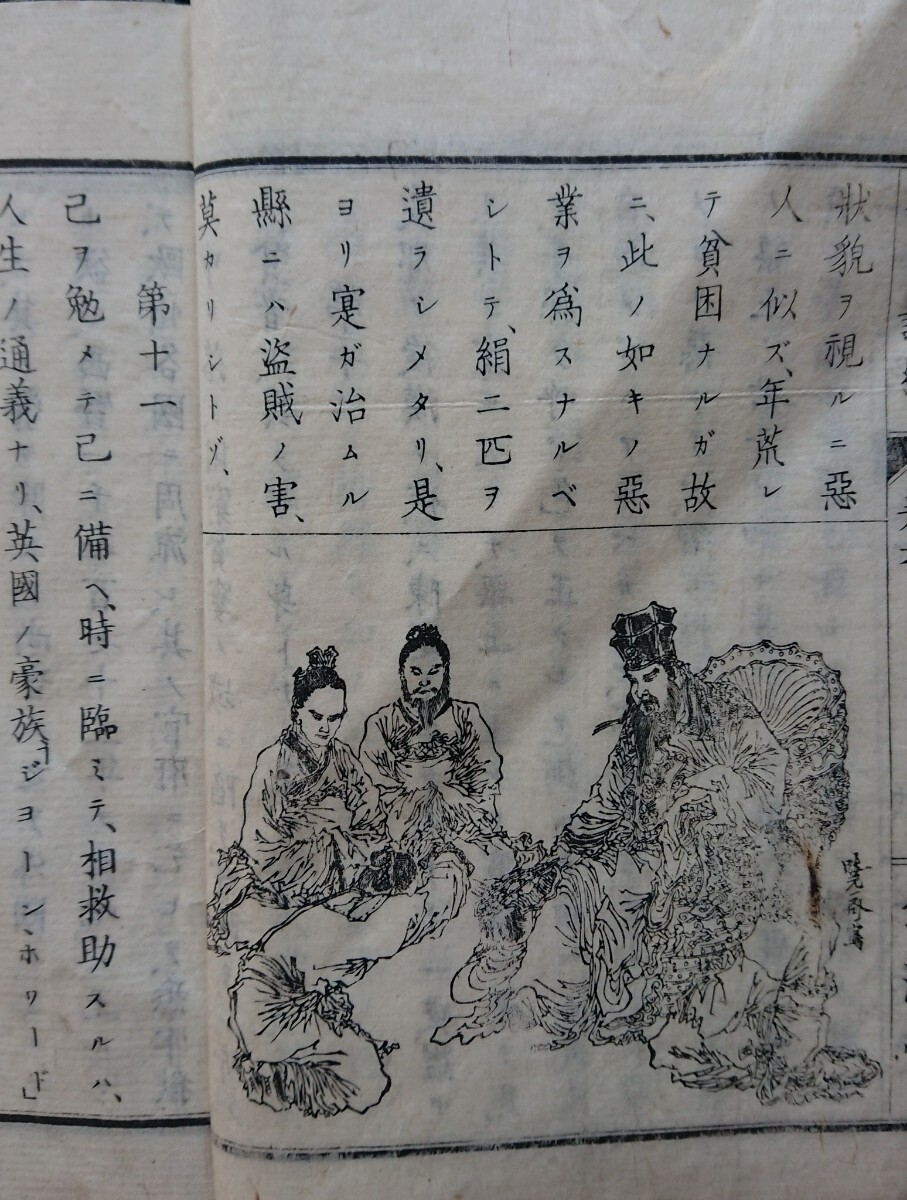 狀貌ヲ視ルニ惡
人ニ似ズ、年荒レ
テ貧困ナルガ故
ニ、此ノ如キノ惡
業ヲ爲スナルベ
シトテ、絹二匹ヲ
遺ラシメタリ、是
ヨリ寔ガ治ムル
縣ニハ盜賊ノ害、
莫カリシトゾ、
曉齋寫
第十一
己ヲ勉メテ己ニ備ヘ、時ニ臨ミテ、相救助スルハ、
人生ノ通義ナリ、英國ノ豪族「ジヨーン、ホワード」